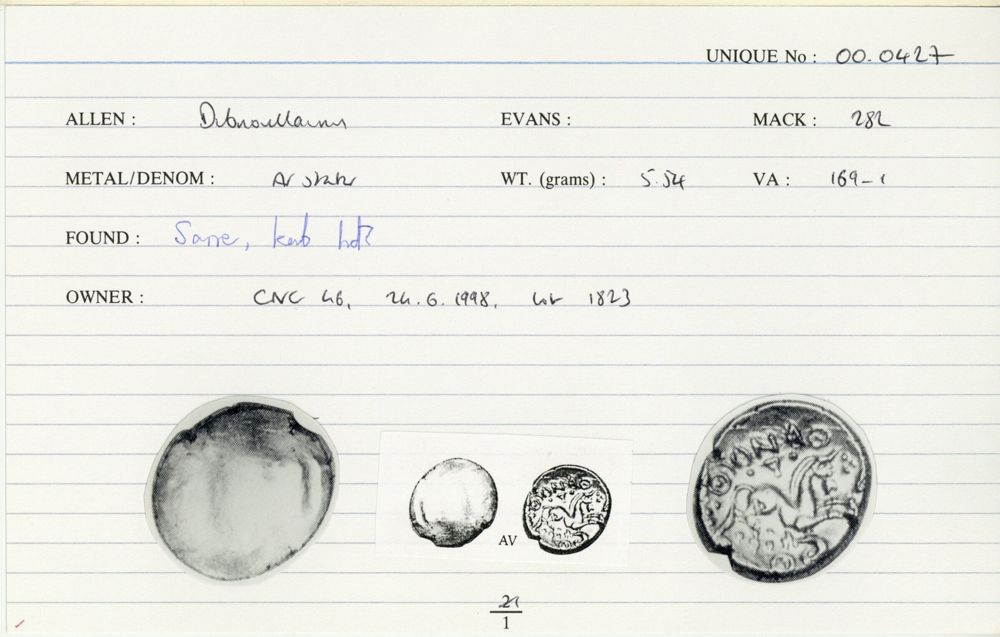 UNIQUE No : 00.0427
ALLEN : Dubnovellaunus EVANS : MACK : 282
METAL/DENOM : AV stater WT. (grams) : 5.54 VA : 169-1
FOUND : Sarre, Kent
OWNER : CNG 46, 24.6.1998, lot 1823
AV
21
1